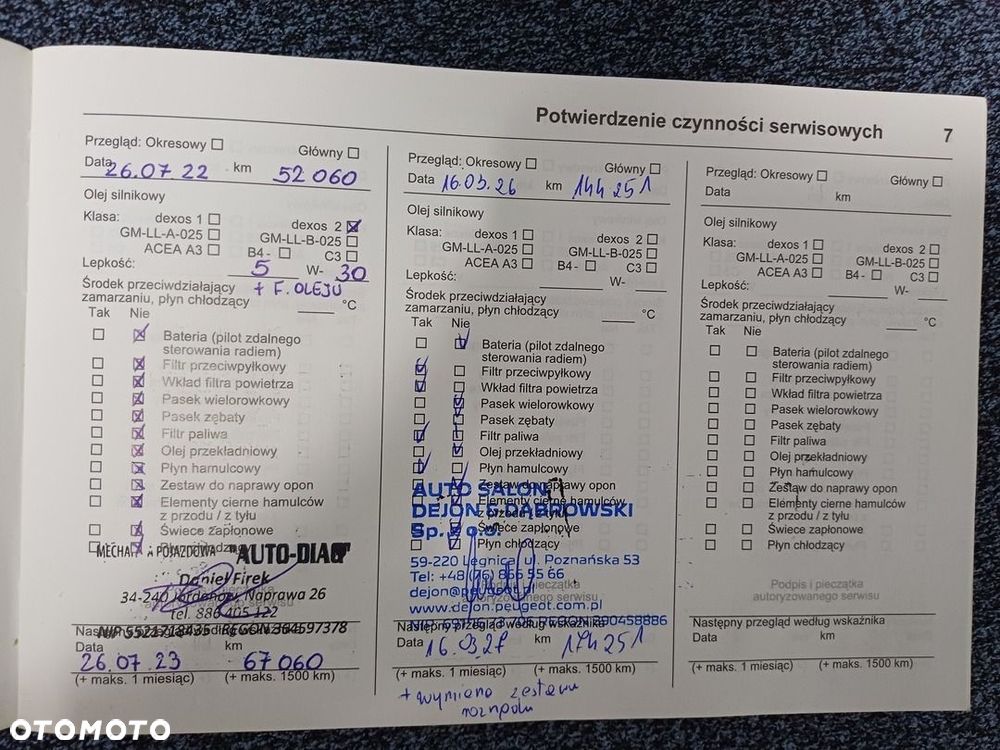 Potwierdzenie czynności serwisowych 7
Przegląd: Okresowy Główny
Data 26.07 22 km 52 060
Olej silnikowy
Klasa: dexos 1 dexos 2
GM-LL-A-025 GM-LL-B-025
ACEA A3 B4 - C3
Lepkość: 5 W- 30
+ F. OLEJU
Środek przeciwdziałający
zamarzaniu, płyn chłodzący °C
Tak Nie
Bateria (pilot zdalnego
sterowania radiem)
Filtr przeciwpyłkowy
Wkład filtra powietrza
Pasek wielorowkowy
Pasek zębaty
Filtr paliwa
Olej przekładniowy
Płyn hamulcowy
Zestaw do naprawy opon
Elementy cierne hamulców
z przodu / z tyłu
Świece zapłonowe
POJAZDOWA "AUTO-DIAG"
Daniel Firek
34-240 Jordanów, Naprawa 26
tel. 886 405 122
NIP 5521718435 REGON 364597378
Data km
26.07.23 67 060
(+ maks. 1 miesiąc) (+ maks. 1500 km)
Przegląd: Okresowy Główny
Data 16.03.26 km 144 251
Olej silnikowy
Klasa: dexos 1 dexos 2
GM-LL-A-025 GM-LL-B-025
ACEA A3 B4 - C3
Lepkość: W-
Środek przeciwdziałający
zamarzaniu, płyn chłodzący °C
Tak Nie
Bateria (pilot zdalnego
sterowania radiem)
Filtr przeciwpyłkowy
Wkład filtra powietrza
Pasek wielorowkowy
Pasek zębaty
Filtr paliwa
Olej przekładniowy
Płyn hamulcowy
Zestaw do naprawy opon
Elementy cierne hamulców
Świece zapłonowe
Płyn chłodzący
AUTO SALON
DEJON & DĄBROWSKI
Sp. z o.o.
59-220 Legnica ul. Poznańska 53
Tel: +48 (76) 866 55 66
www.dejon.peugeot.com.pl
Następny przegląd według wskaźnika
Data km
16.03.27 174 251
(+ maks. 1 miesiąc) (+ maks. 1500 km)
+ wymiana zestawu
rozrządu
Przegląd: Okresowy Główny
Data km
Olej silnikowy
Klasa: dexos 1 dexos 2
GM-LL-A-025 GM-LL-B-025
ACEA A3 B4 - C3
Lepkość: W-
Środek przeciwdziałający
zamarzaniu, płyn chłodzący °C
Tak Nie
Bateria (pilot zdalnego
sterowania radiem)
Filtr przeciwpyłkowy
Wkład filtra powietrza
Pasek wielorowkowy
Pasek zębaty
Filtr paliwa
Olej przekładniowy
Płyn hamulcowy
Zestaw do naprawy opon
Elementy cierne hamulców
z przodu / z tyłu
Świece zapłonowe
Płyn chłodzący
Podpis i pieczątka
autoryzowanego serwisu
Następny przegląd według wskaźnika
Data km
(+ maks. 1 miesiąc) (+ maks. 1500 km)
OTOMOTO